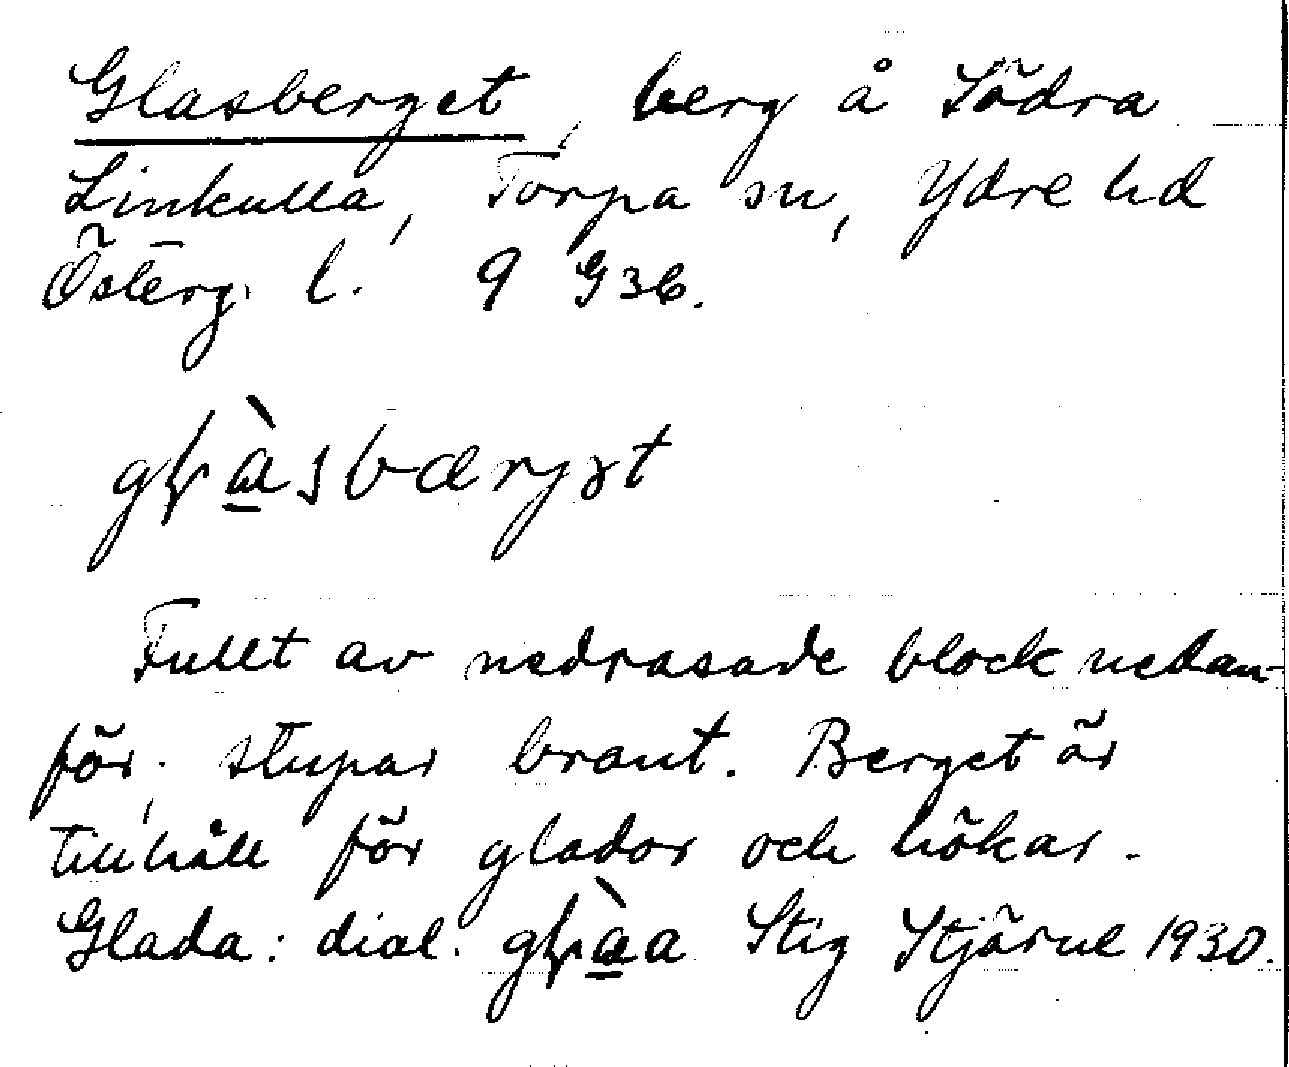 Glasberget, berg å Södra
Linkulla, Torpa sn, Ydre hd
Österg. l. 9 G 36.
Fullt av nedrasade block nedan-
för, stupar brant. Berget är
tillhåll för glador och hökar.
Glada: dial. Stig Stjärne 1930.